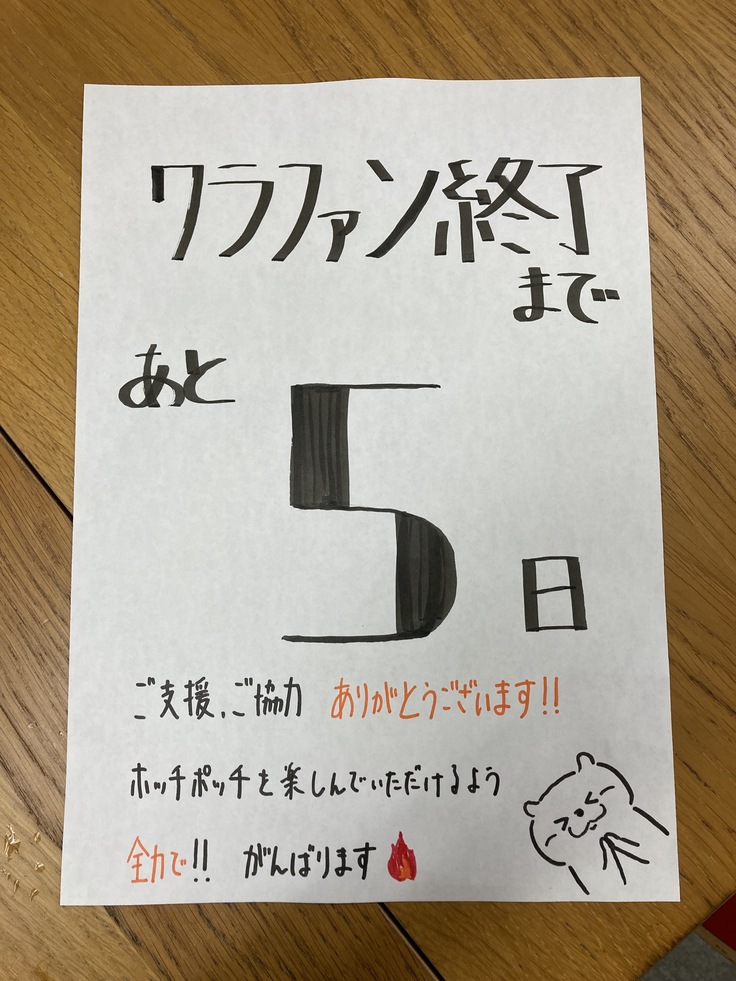 ワラファン終了
まで
あと
5日
ご支援、ご協力 ありがとうございます!!
ホッチポッチを楽しんでいただけるよう
全力で!! がんばります